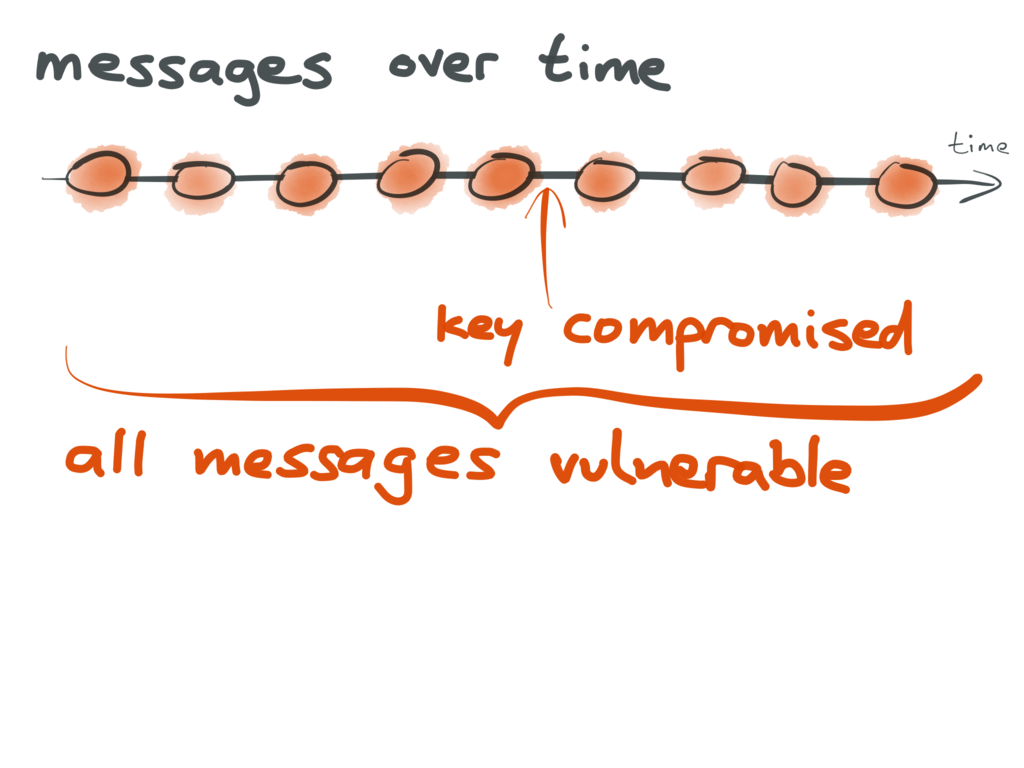 messages over time
time
key compromised
all messages vulnerable